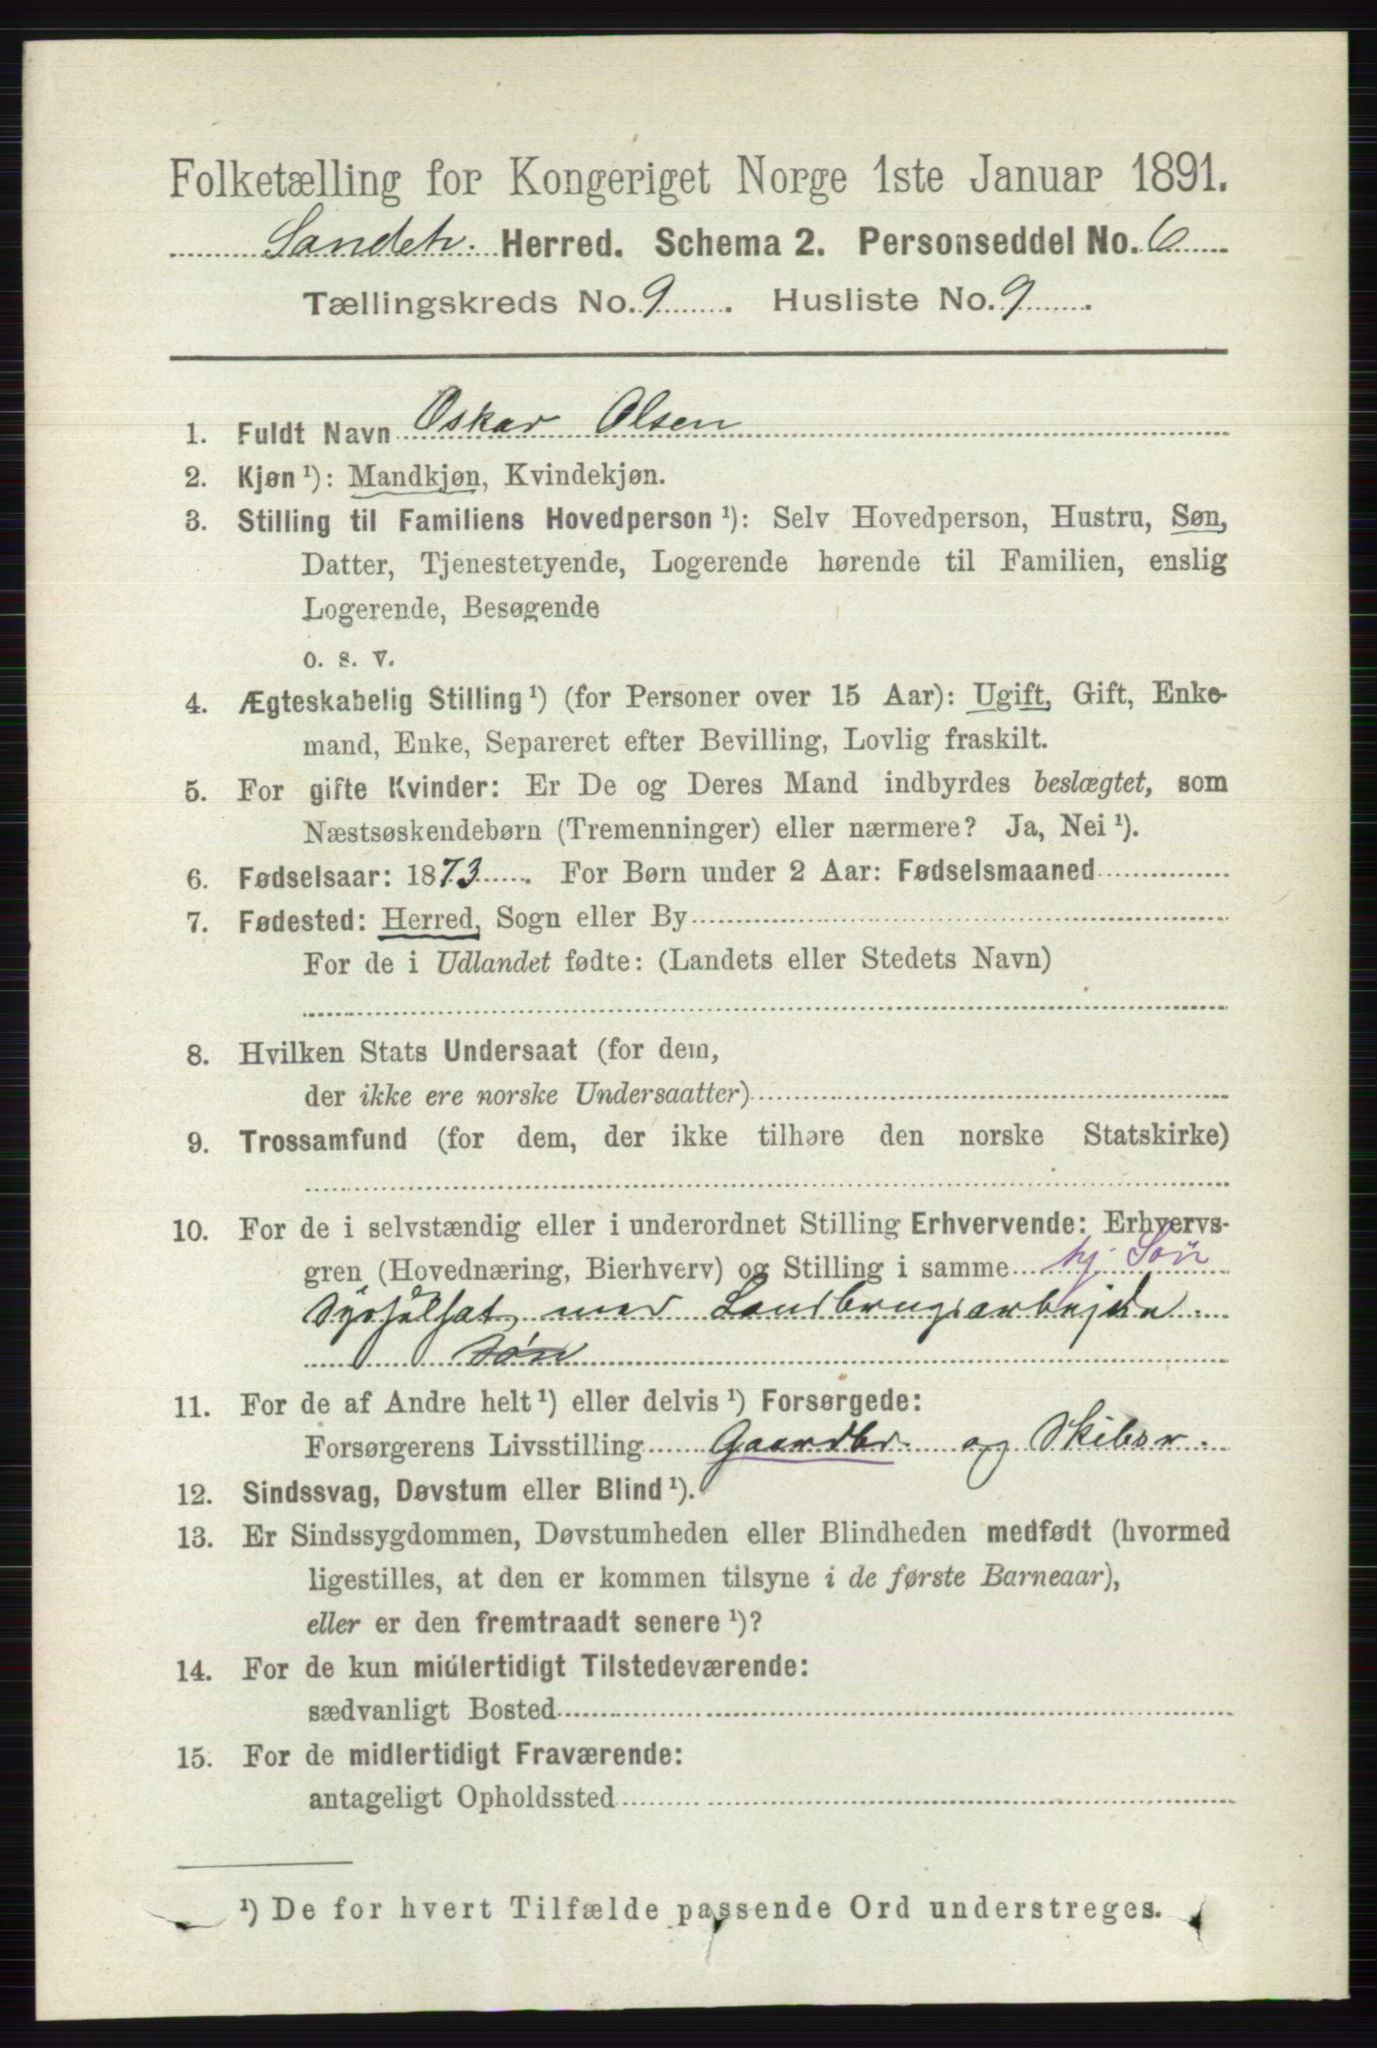 Folketælling for Kongeriget Norge 1ste Januar 1891.
Sandeh. Herred. Schema 2. Personseddel No. 6
Tællingskreds No. 9. Husliste No. 9.
1. Fuldt Navn Oskar Olsen
2. Kjøn ¹): Mandkjøn, Kvindekjøn.
3. Stilling til Familiens Hovedperson ¹): Selv Hovedperson, Hustru, Søn,
Datter, Tjenestetyende, Logerende hørende til Familien, enslig
Logerende, Besøgende
o. s. v.
4. Ægteskabelig Stilling ¹) (for Personer over 15 Aar): Ugift, Gift, Enke-
mand, Enke, Separeret efter Bevilling, Lovlig fraskilt.
5. For gifte Kvinder: Er De og Deres Mand indbyrdes beslægtet, som
Næstsøskendebørn (Tremenninger) eller nærmere? Ja, Nei ¹).
6. Fødselsaar: 1873. For Børn under 2 Aar: Fødselsmaaned
7. Fødested: Herred, Sogn eller By
For de i Udlandet fødte: (Landets eller Stedets Navn)
8. Hvilken Stats Undersaat (for dem,
der ikke ere norske Undersaatter)
9. Trossamfund (for dem, der ikke tilhøre den norske Statskirke)
10. For de i selvstændig eller i underordnet Stilling Erhvervende: Erhvervs-
gren (Hovednæring, Bierhverv) og Stilling i samme hj. Søn
Sysselsat med Landbrugsarbejde.
Søn
11. For de af Andre helt ¹) eller delvis ¹) Forsørgede:
Forsørgerens Livsstilling Gaardbr. og Skibsr.
12. Sindssvag, Døvstum eller Blind ¹).
13. Er Sindssygdommen, Døvstumheden eller Blindheden medfødt (hvormed
ligestilles, at den er kommen tilsyne i de første Barneaar),
eller er den fremtraadt senere ¹)?
14. For de kun midlertidigt Tilstedeværende:
sædvanligt Bosted
15. For de midlertidigt Fraværende:
antageligt Opholdssted
¹) De for hvert Tilfælde passende Ord understreges.